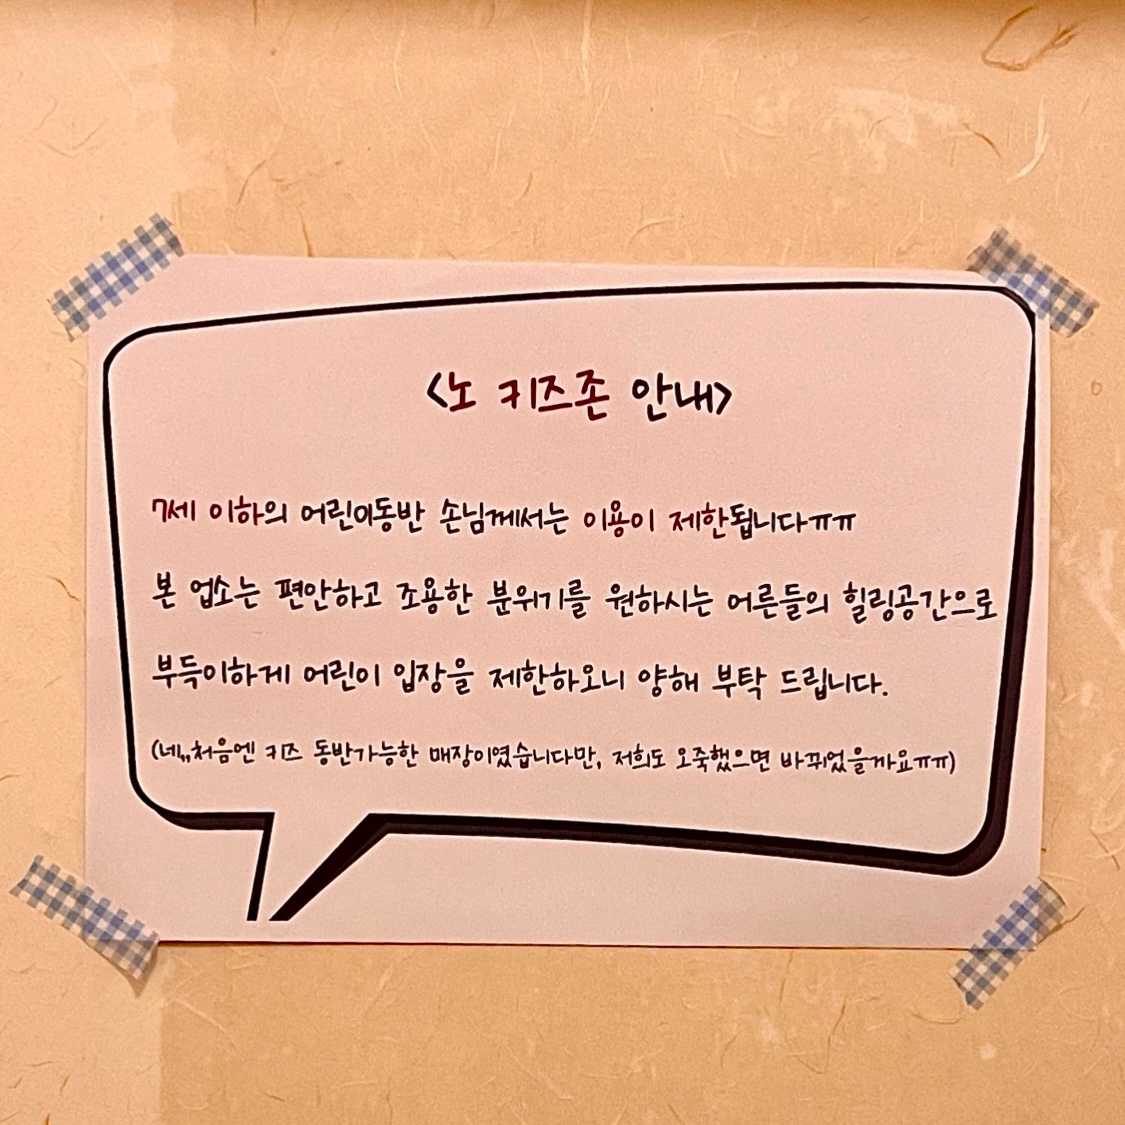 <노 키즈존 안내>
7세 이하의 어린이동반 손님께서는 이용이 제한됩니다ㅠㅠ
본 업소는 편안하고 조용한 분위기를 원하시는 어른들의 힐링공간으로
부득이하게 어린이 입장을 제한하오니 양해 부탁 드립니다.
(네,,처음엔 키즈 동반가능한 매장이였습니다만, 저희도 오죽했으면 바뀌었을까요ㅠㅠ)